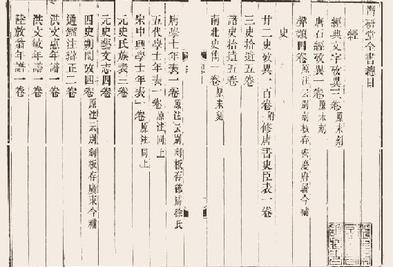 潛研堂全書總目
經
經典文字攷異三卷原未刻
唐石經攷異一卷原未刻
聲類四卷原注云別刻板存安慶府署今補
史
廿二史攷異一百卷附修唐書史臣表一卷
三史拾遺五卷
諸史拾遺五卷
南北史雋一卷原未刻
唐學士年表一卷原注云別刻板存德清徐氏
五代學士年表一卷原注同上
宋中興學士年表一卷原注同上
元史氏族表三卷
元史藝文志四卷
四史朔閏攷四卷原注云別刻板存廣東今補
通鑑注辯正二卷
洪文惠年譜一卷
洪文敏年譜一卷
陸放翁年譜一卷